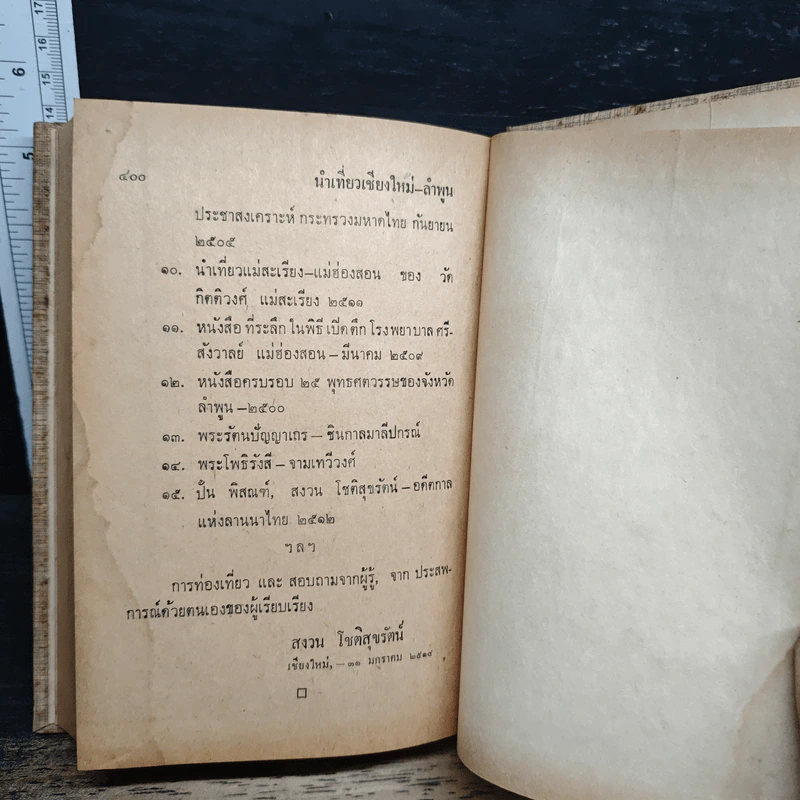 ๔๐๐
นำเที่ยวเชียงใหม่–ลำพูน
ประชาสงเคราะห์ กระทรวงมหาดไทย กันยายน
๒๕๐๕
๑๐. นำเที่ยวแม่สะเรียง–แม่ฮ่องสอน ของ วัด
กิตติวงศ์ แม่สะเรียง ๒๕๑๑
๑๑. หนังสือ ที่ระลึก ในพิธี เปิด ตึก โรงพยาบาล ศรี-
สังวาลย์ แม่ฮ่องสอน – มีนาคม ๒๕๐๙
๑๒. หนังสือครบรอบ ๒๕ พุทธศตวรรษของจังหวัด
ลำพูน –๒๕๐๐
๑๓. พระรัตนปัญญาเถร – ชินกาลมาลีปกรณ์
๑๔. พระโพธิรังสี – จามเทวีวงศ์
๑๕. ปั้น พิสณฑ์, สงวน โชติสุขรัตน์ – อดีตกาล
แห่งลานนาไทย ๒๕๑๒
ฯ ล ฯ
การท่องเที่ยว และ สอบถามจากผู้รู้, จาก ประสพ-
การณ์ด้วยตนเองของผู้เรียบเรียง
สงวน โชติสุขรัตน์
เชียงใหม่, – ๓๑ มกราคม ๒๕๑๔
6
5
17
16
15
14